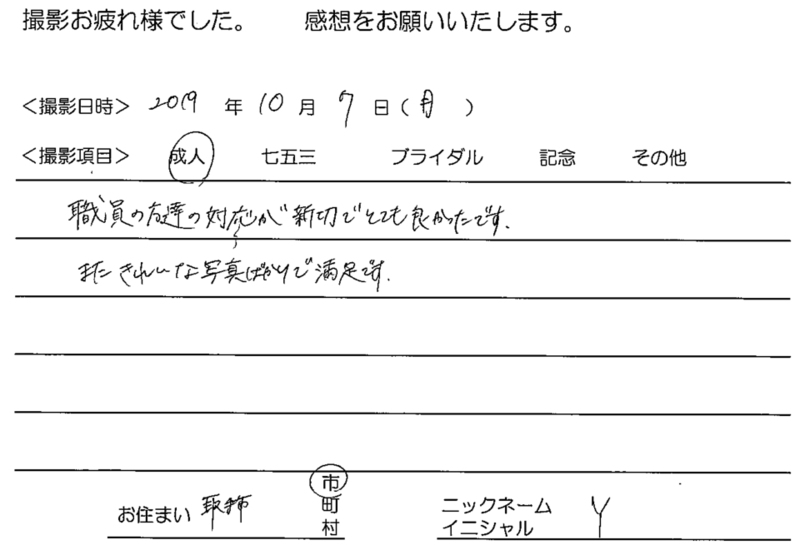 撮影お疲れ様でした。 感想をお願いいたします。
<撮影日時> 2019 年 10 月 7 日 ( 月 )
<撮影項目> 成人 七五三 ブライダル 記念 その他
職員の方達の対応が新切でとても良かったです。
またきれいな写真ばかりで満足です。
お住まい 取手 市 町 村
ニックネーム イニシャル Y